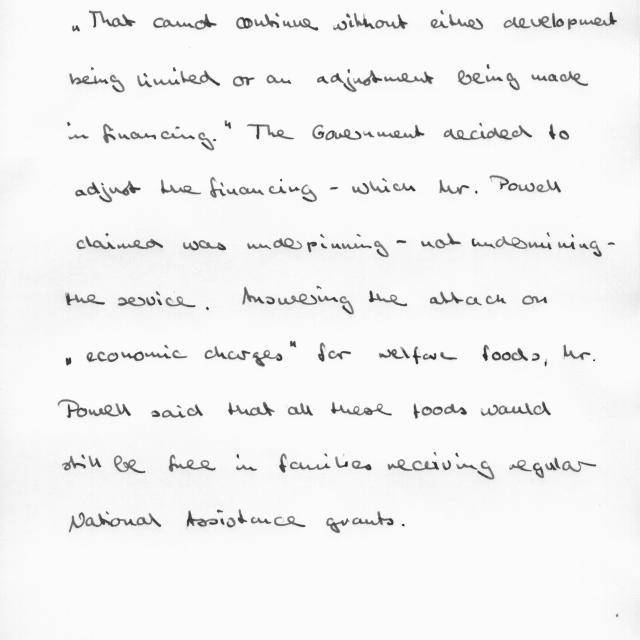 „That cannot continue without either development
being limited or an adjustment being made
in financing." The Government decided to
adjust the financing - which Mr. Powell
claimed was underpinning - not undermining -
the service. Answering the attack on
„economic charges" for welfare foods, Mr.
Powell said that all these foods would
still be free in families receiving regular
National Assistance grants.